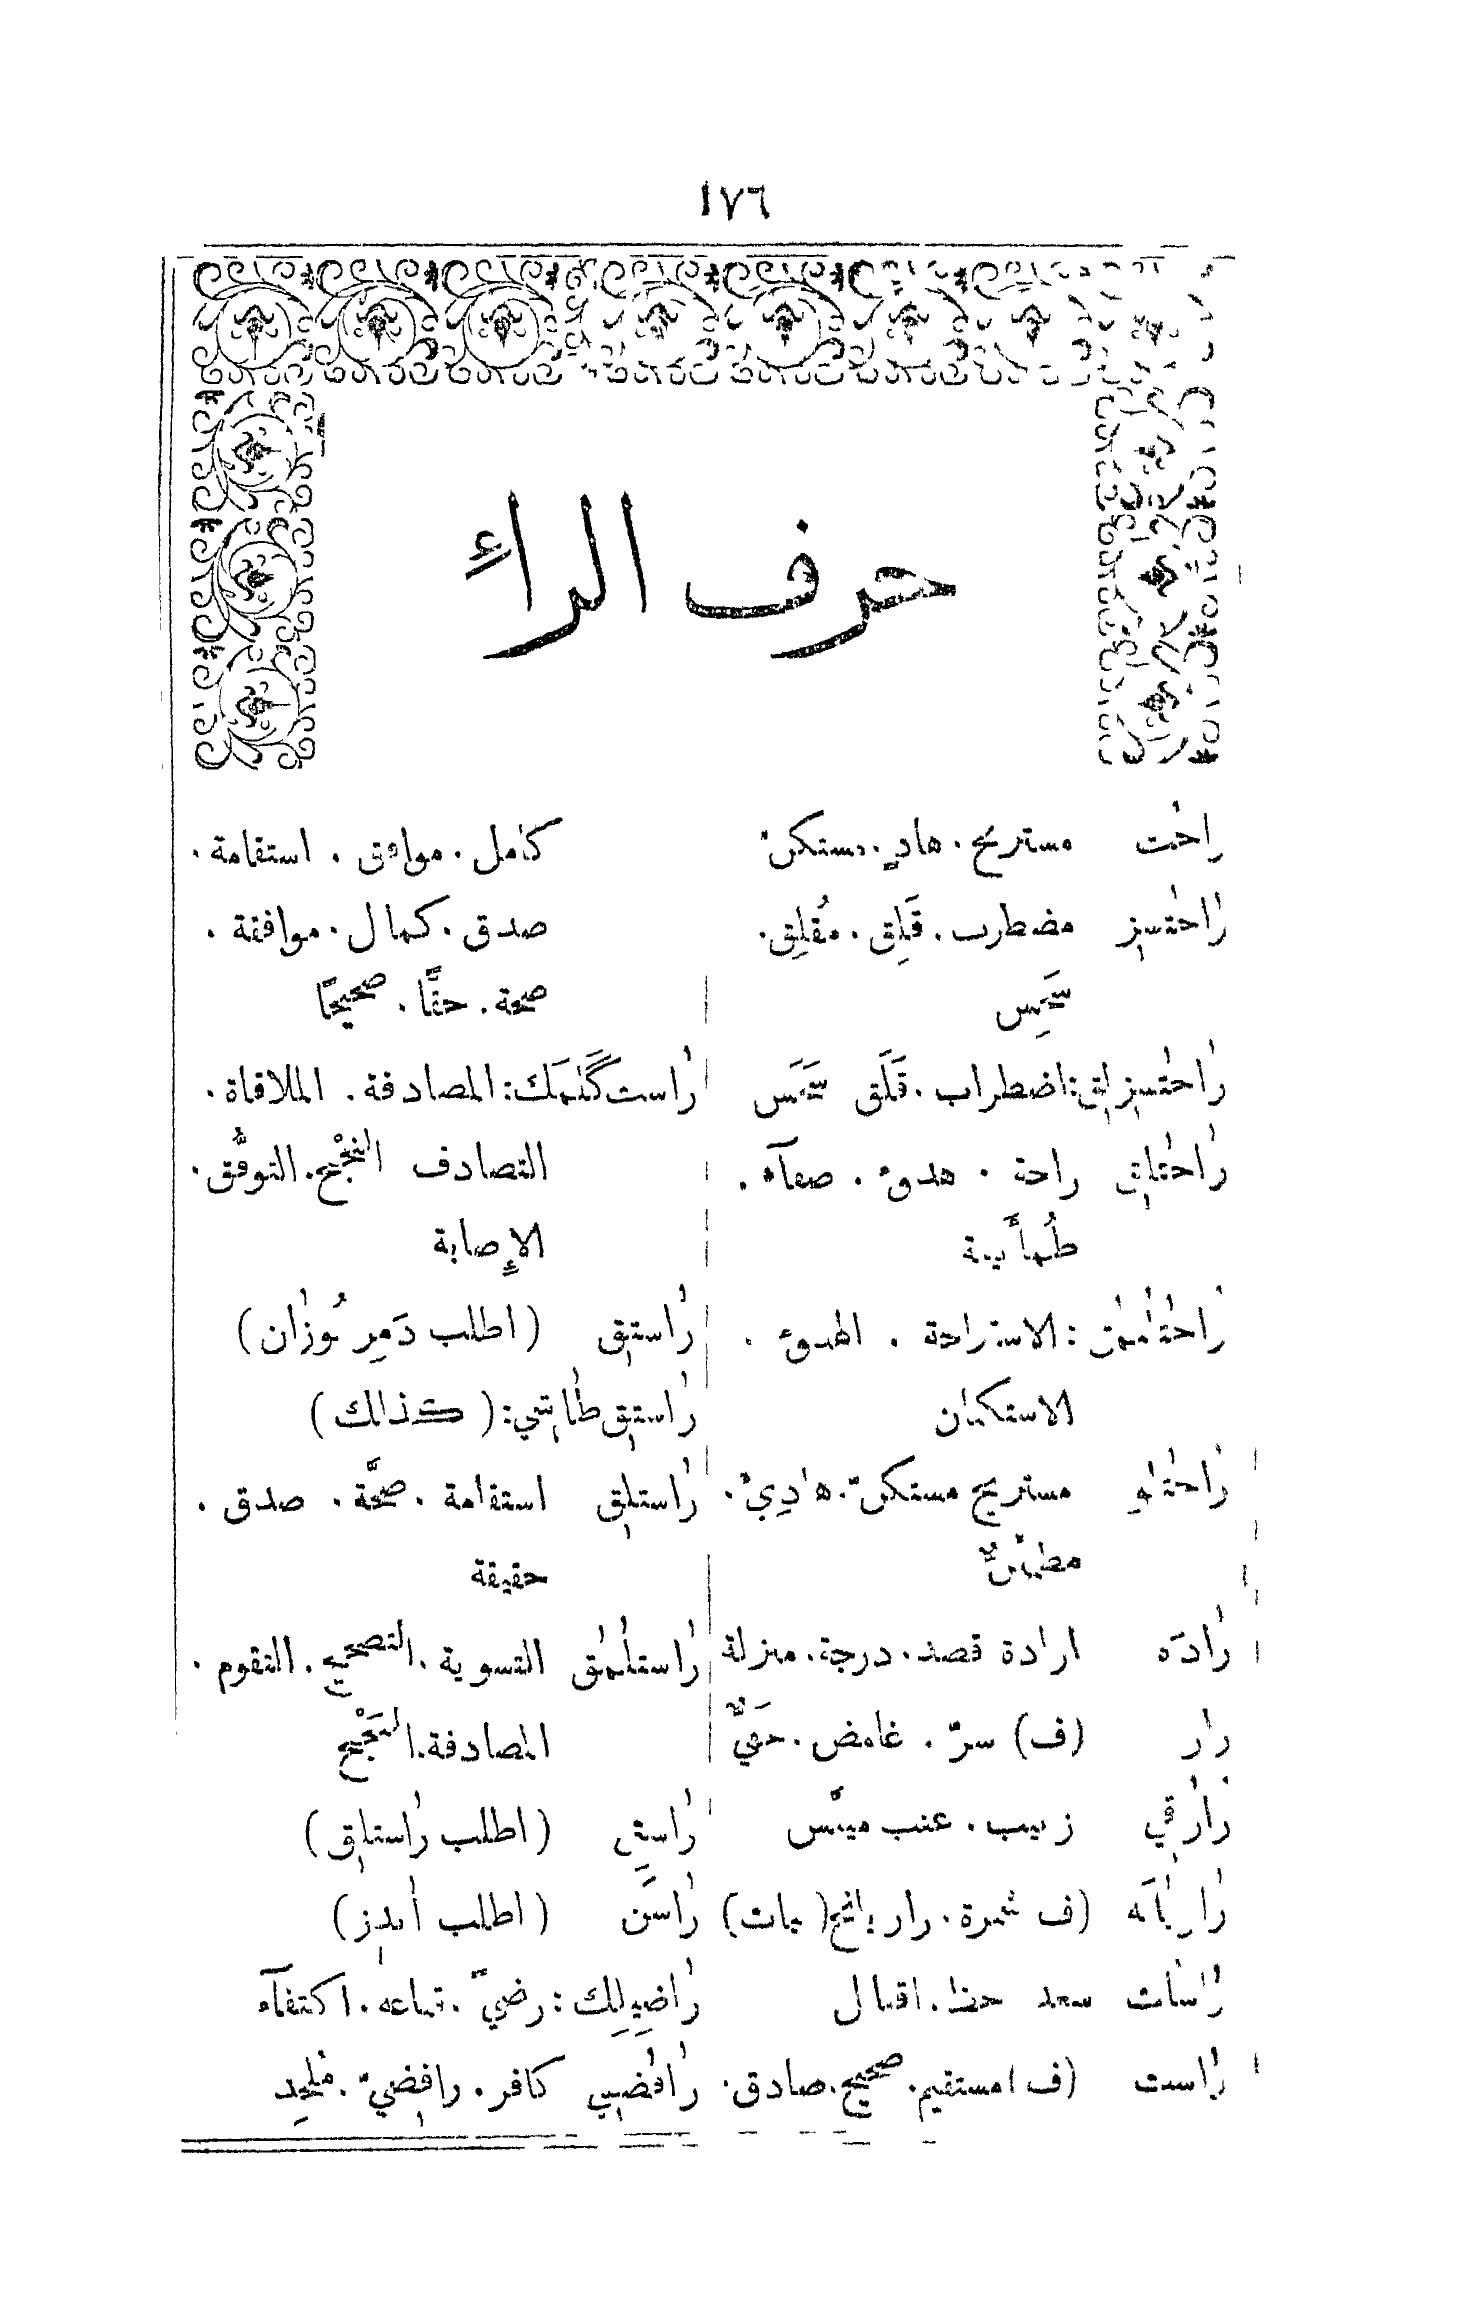 ١٧٦
حرف الراء
راحت مستريح. هادٍ. مستكنّ
راحتسز مضطرب. قَلِق. مُقلِق.
راحتسزلق: اضطراب. قَلَق
راحتلق راحة. هدوء. صفآء.
راحتلنمق: الاستراحة. الهدوء.
الاستكنان
راحتلو مستريح مستكنّ. هادِيْ.
مطمئنٌّ
رادَه ارادة قصد. درجة. منزلة
راز (ف) سرّ. غامض. خفيٌّ
رازقي زبيب. عنب
رازيانَه (ف شمرة. رازيانج (بات)
سعد حظ. اقبال
راست (ف) مستقيم. صحيح. صادق.
كامل. موافق. استقامة.
صدق. كمال. موافقة.
صحة. حقًّا. صحيحًا
راست گَلمَك: المصادفة. الملاقاة.
التصادف التوفّق.
الإصابة
راستق (اطلب
راستق طاشي: (كذالك)
راستلق استقامة. صحَّة. صدق.
حقيقة
راستلمق التسوية. التصحيح. التقوم.
المصادفة.
(اطلب راستلق)
(اطلب
راضيلِك: رضيّ. اكتفآء
رافضي كافر. رافضيّ. مُلحِد